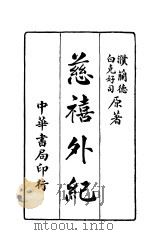 濮蘭德
白克好司
原著
慈禧外紀
中華書局印行
www.toopoo.com